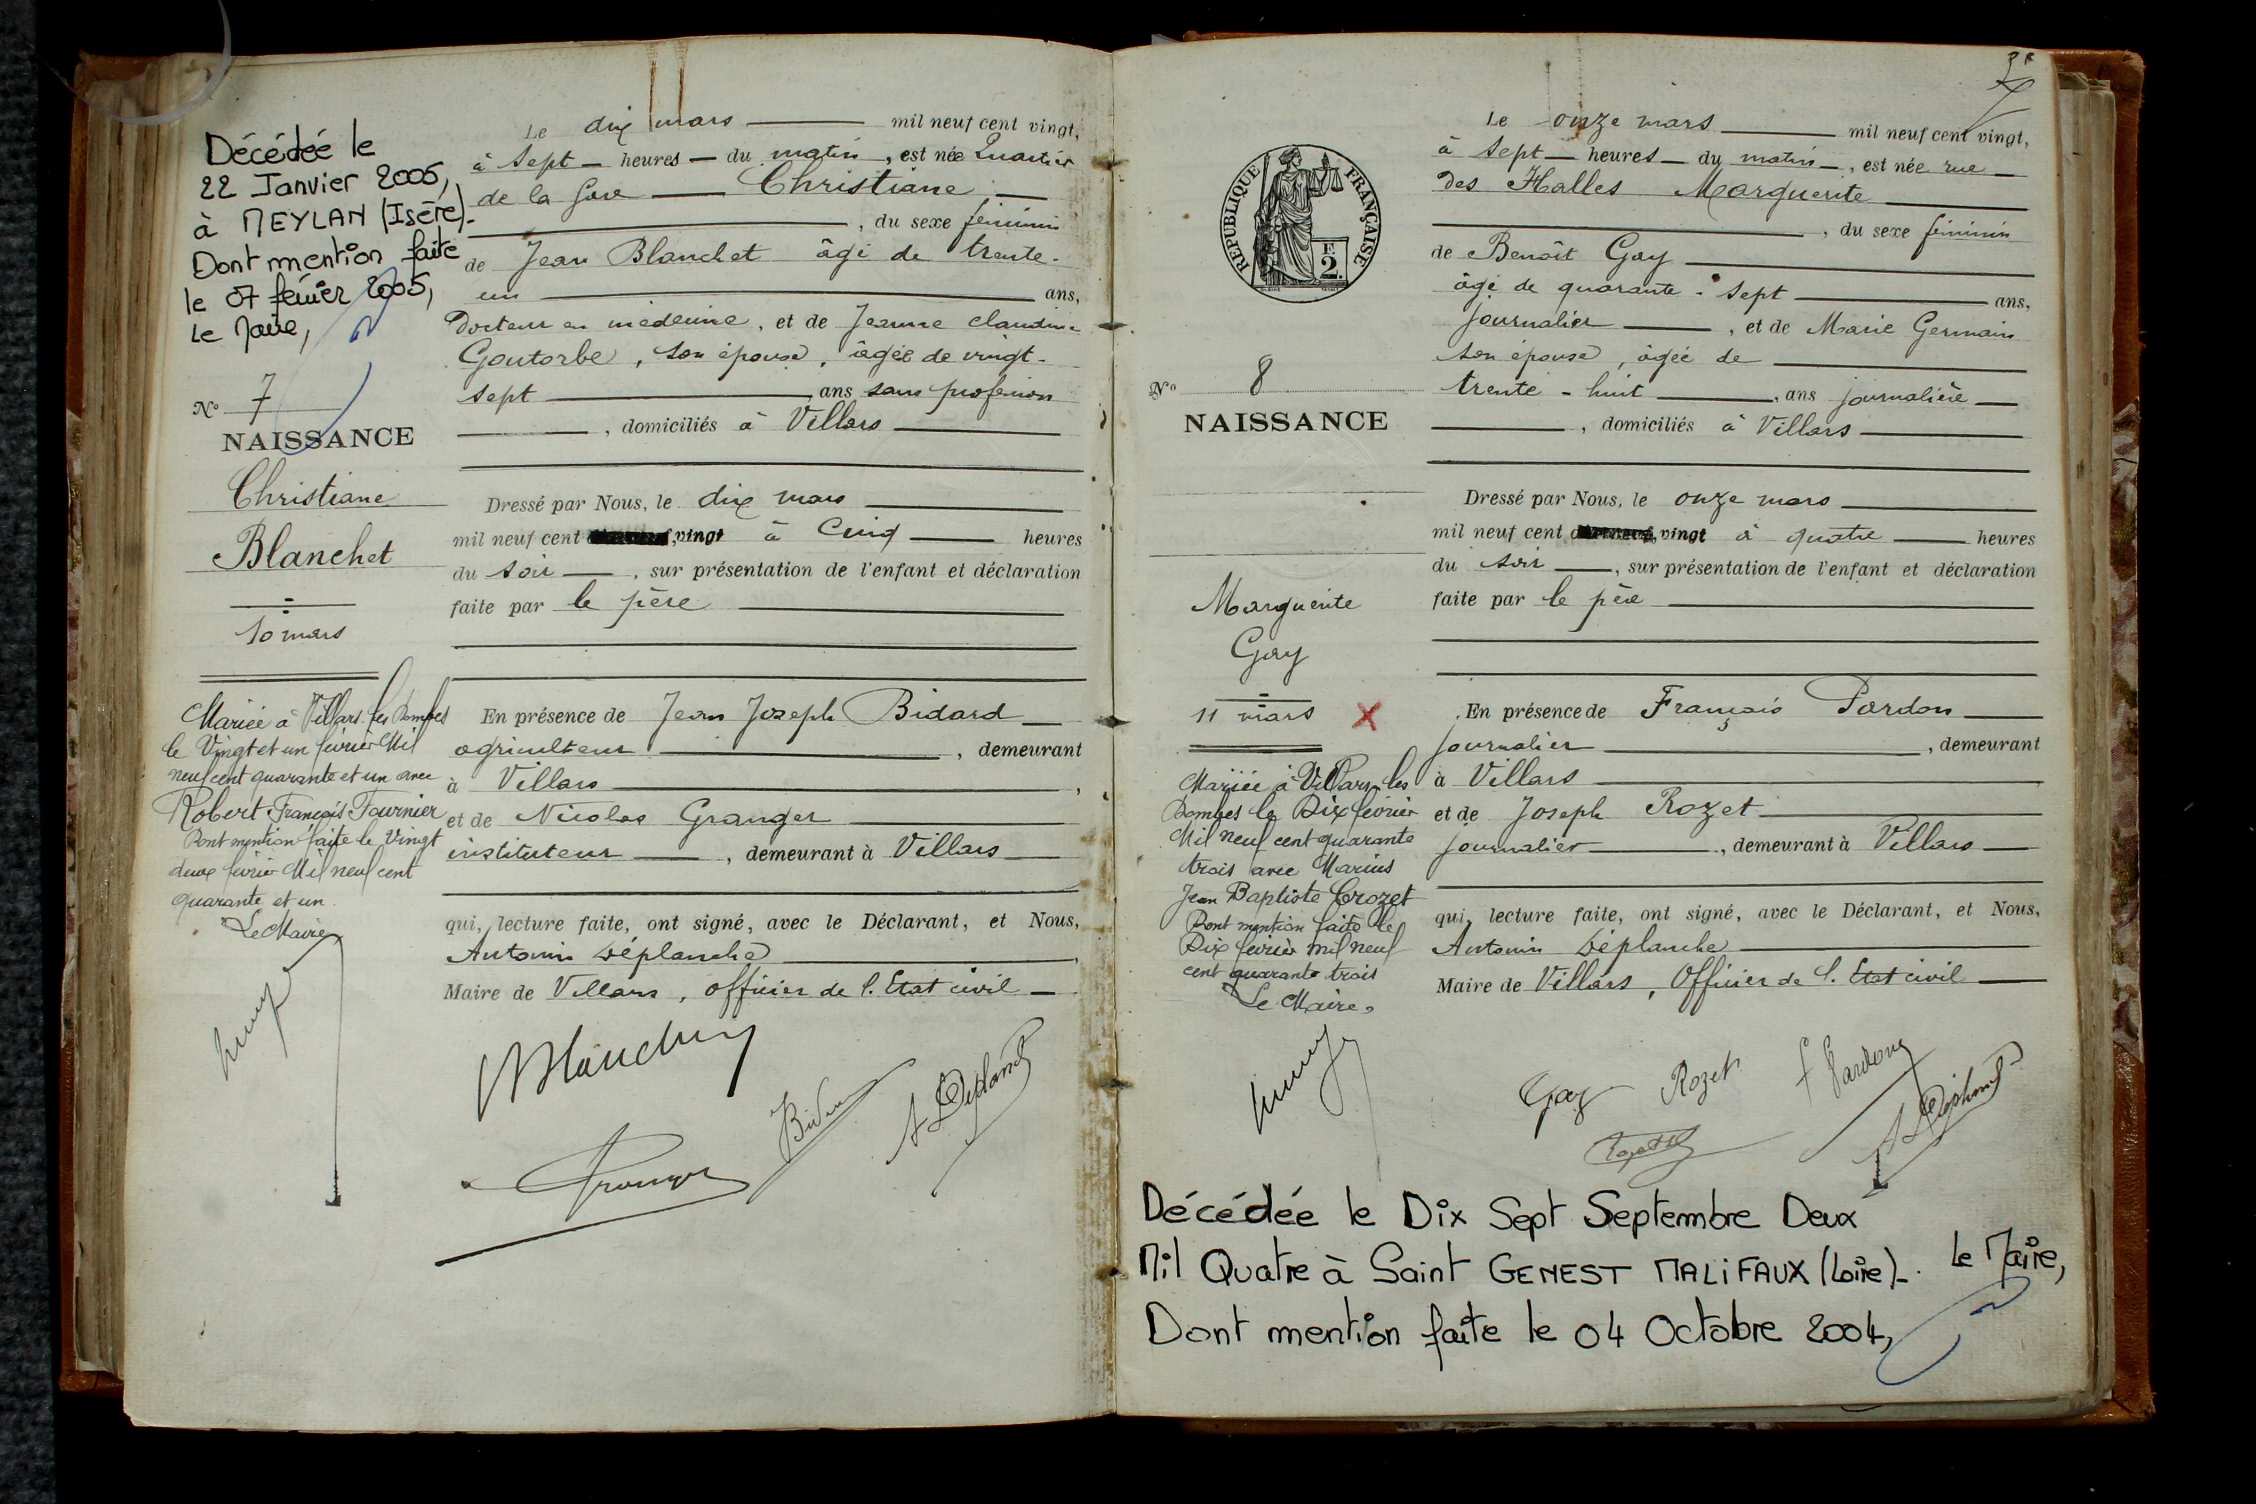 Décédée le
22 Janvier 2005,
à MEYLAN (Isère)-
Dont mention faite
le 07 février 2005,
Le Maire,
No 7
NAISSANCE
Christiane
Blanchet
10 mars
Mariée à Villars les Dombes
le Vingt et un février Mil
neuf cent quarante et un avec
Robert François Fournier
Dont mention faite le Vingt
deux février Mil neuf cent
quarante et un
Le Maire
Le dix mars mil neuf cent vingt,
à Sept heures du matin, est née Quartier
de la Gare Christiane
, du sexe féminin
de Jean Blanchet âgé de trente-
un ans,
Docteur en médecine, et de Jeanne Claudine
Goutorbe, son épouse, âgée de vingt-
sept ans sans profession
, domiciliés à Villars
Dressé par Nous, le dix mars
mil neuf cent vingt à Cinq heures
du soir, sur présentation de l'enfant et déclaration
faite par le père
En présence de Jean Joseph Bidard
agriculteur, demeurant
à Villars,
et de Nicolas Granger
instituteur, demeurant à Villars
qui, lecture faite, ont signé, avec le Déclarant, et Nous,
Antonin Déplanche,
Maire de Villars, Officier de l'Etat civil
Blanchet
Bidard
A Déplanche
Granger
REPUBLIQUE FRANÇAISE
E
2
No 8
NAISSANCE
Marguerite
Gay
11 mars X
Mariée à Villars les
Dombes le Dix février
Mil neuf cent quarante
trois avec Marius
Jean Baptiste Crozet
Dont mention faite le
Dix février mil neuf
cent quarante trois
Le Maire
Le onze mars mil neuf cent vingt,
à Sept heures du matin, est née rue
des Halles Marguerite
, du sexe féminin
de Benoît Gay
âgé de quarante-sept ans,
journalier, et de Marie Germain
son épouse, âgée de
trente-huit, ans journalière
, domiciliés à Villars
Dressé par Nous, le onze mars
mil neuf cent vingt à quatre heures
du soir, sur présentation de l'enfant et déclaration
faite par le père
En présence de François Pardon
journalier, demeurant
à Villars
et de Joseph Rozet
journalier, demeurant à Villars
qui, lecture faite, ont signé, avec le Déclarant, et Nous,
Antonin Déplanche
Maire de Villars, Officier de l'Etat civil
Gay Rozet
A Déplanche
Décédée le Dix Sept Septembre Deux
Mil Quatre à Saint GENEST MALIFAUX (Loire)-. Le Maire,
Dont mention faite le 04 Octobre 2004,